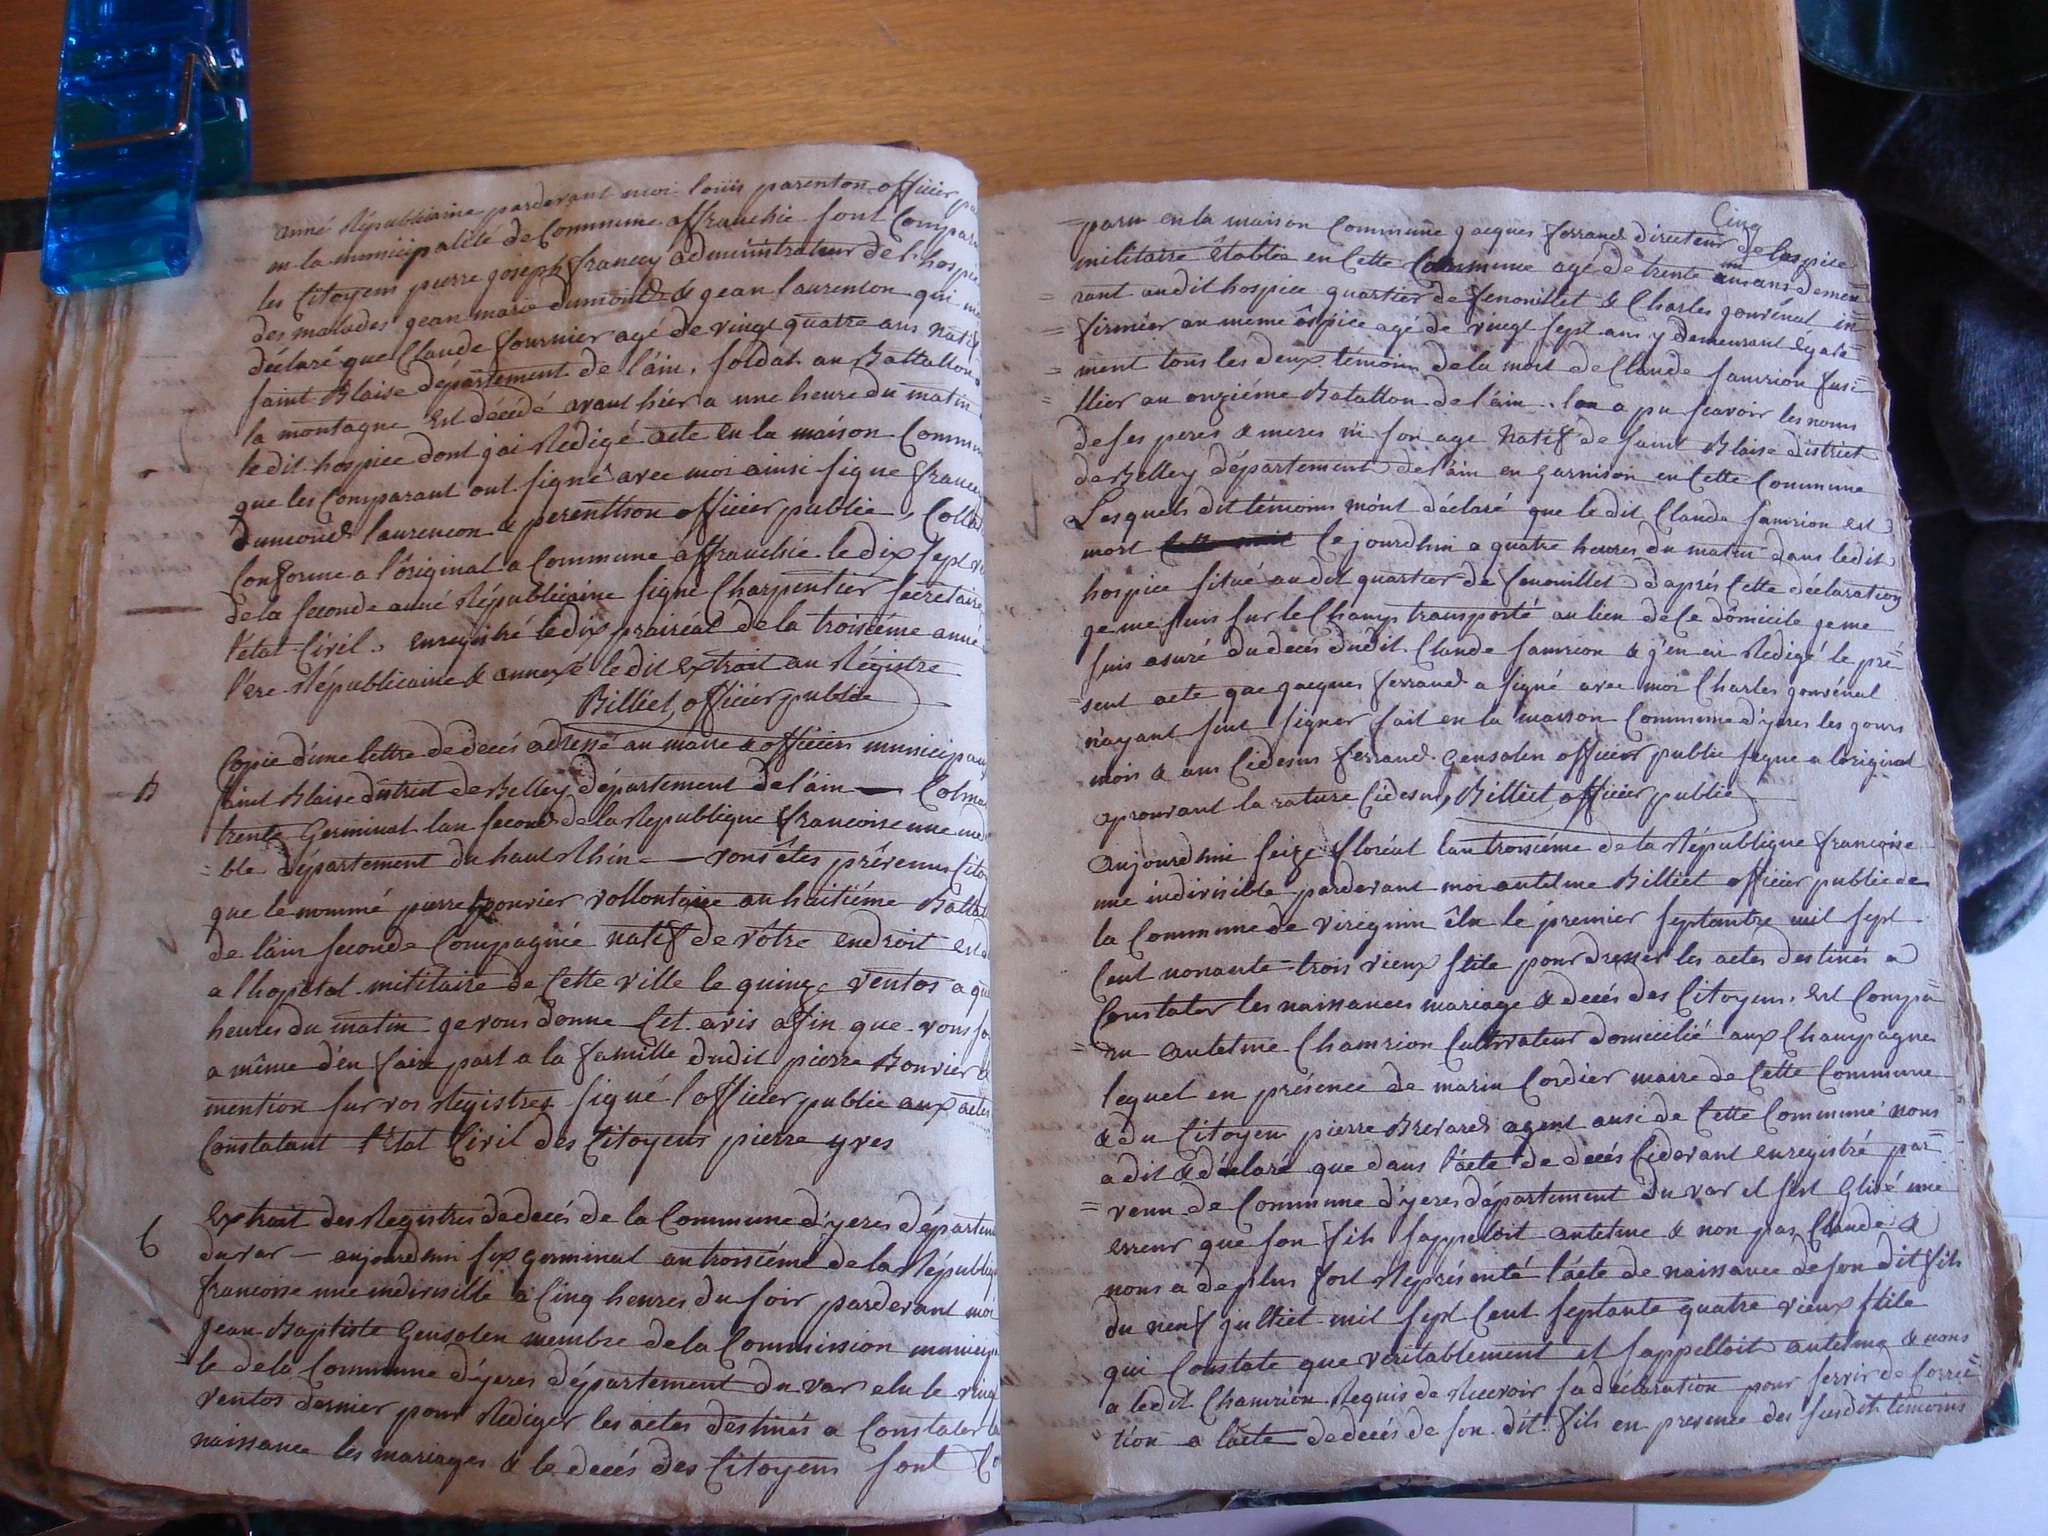 anné Républicaine pardevant moi loüis parenton officier pu
en la municipalité de Commune affranchie sont Compara
les Citoyens pierre joseph francey administrateur de l'hospi
des malades jean marie dumond & jean laurencon qui m
déclaré que Claude fournier agé de vingt quatre ans natif
saint Blaise département de l'ain, soldat au Battallon
la montagne Est décédé avant hier a une heure du matin
ledit hospice dont j'ai Redigé acte en la maison Commu
que les Comparant ont signé avec moi ainsi signe france
dumond laurencon & perenthon officier public, Colla
Conforme a l'original a Commune affranchie le dix sept
de la seconde anné Républicaine signé Charpentier secretaire
l'etat Civil. enregistré le dix prairéal de la troisiéme anné
l'ere Républicaine & annexé ledit extrait au Régistre
Billiet, officier public
Copie d'une lettre de décés adressé au maire & officiers municipau
B saint Blaise district de Belley département de l'ain — Colma
trente Germinal l'an second de la Republique francoise une ind
=ble département du haut Rhin — vous êtes prévenus Cito
que le nommé pierre Bouvier vollontaire au huitiéme Batta
de l'ain seconde Compagnie natif de vôtre endroit est
a lhopital militaire de Cette ville le quinze ventos a qu
heures du matin je vous donne Cet avis afin que vous so
a même d'en faire part a la famille dudit pierre Bouvier &
mention sur vos Registres signé l'officier public aux actes
Constatant l'Etat Civil des Citoyens pierre yves
6 Extrait des Registres de decés de la Commune d'yeres départem
du var — aujourdhui six germinal an troisiéme de la Républiq
francoise une indivisible a Cinq heures du soir pardevant moi
jean Baptiste Gensolen membre de la Commission municip
=le de la Commune d'yeres département du var elu le vingt
ventos dernier pour Rediger les actes destinés a Constater la
naissance les mariages & le decés des Citoyens sont Co
Cinq
=paru en la maison Commune jacques ferraud directeur de lospice
militaire établie en Cette Commune agé de trente un ans demeu=
=rant audit hospice quartier de fenouillet & Charles jouvénal in=
=firmier au meme ôspice agé de vingt sept ans y demeurant égale=
=ment tous les deux témoins de la mort de Claude samrion fusi=
=llier au onziéme Batallon de l'ain. lon a pu scavoir les noms
de ses peres & meres ni son age natif de saint Blaise district
de Belley département de l'ain en garnison en Cette Commune
Lesquels dit témoins m'ont déclaré que ledit Claude samrion est
mort Ce jourdhui a quatre heures du matin dans ledit
hospice situé audit quartier de fenouillet d'aprés Cette déclaration
je me suis sur le Champ transporté au lieu de Ce dômicile je me
suis asuré du decés dudit Claude samrion & j'en ai Redigé le pré=
=sent acte que jacques ferraud a signé avec moi Charles jouvénal
n'ayant seut signer fait en la maison Commune d'yeres les jours
mois & ans Cidesus ferraud. Gensolen officier public signe a l'original
aprouvant la rature Cidesus, Billiet, officier public
aujourdhui seize floréal l'an troisiéme de la République francoise
une indivisible pardevant moi antelme Billiet officier public de
la Commune de virignin êlu le premier septembre mil sept
Cent nonante trois vieux stile pour dresser les actes destinés a
Constater les naissances mariage & decés des Citoyens, Est Compa=
=ru antelme Chamrion Cultivateur domicilié aux Champagne
lequel en présence de marin Cordier maire de Cette Commune
& du Citoyen pierre Brevard agent ausi de Cette Commune nous
a dit & déclaré que dans l'acte de decés Cidevant enregistré par=
=venu de Commune d'yeres département du var il s'est Glisé une
erreur que son fils sappeloit antelme & non pas Claude &
nous a de plus fort Représenté l'acte de naissance de son dit fils
du neuf julliet mil sept Cent septante quatre vieux stile
qui Constate que veritablement il sappelloit antelme & nous
a ledit Chamrion Requis de Recevoir sa déclaration pour servir de Correc=
tion a l'acte de decés de son dit fils en presence des susdits témoins